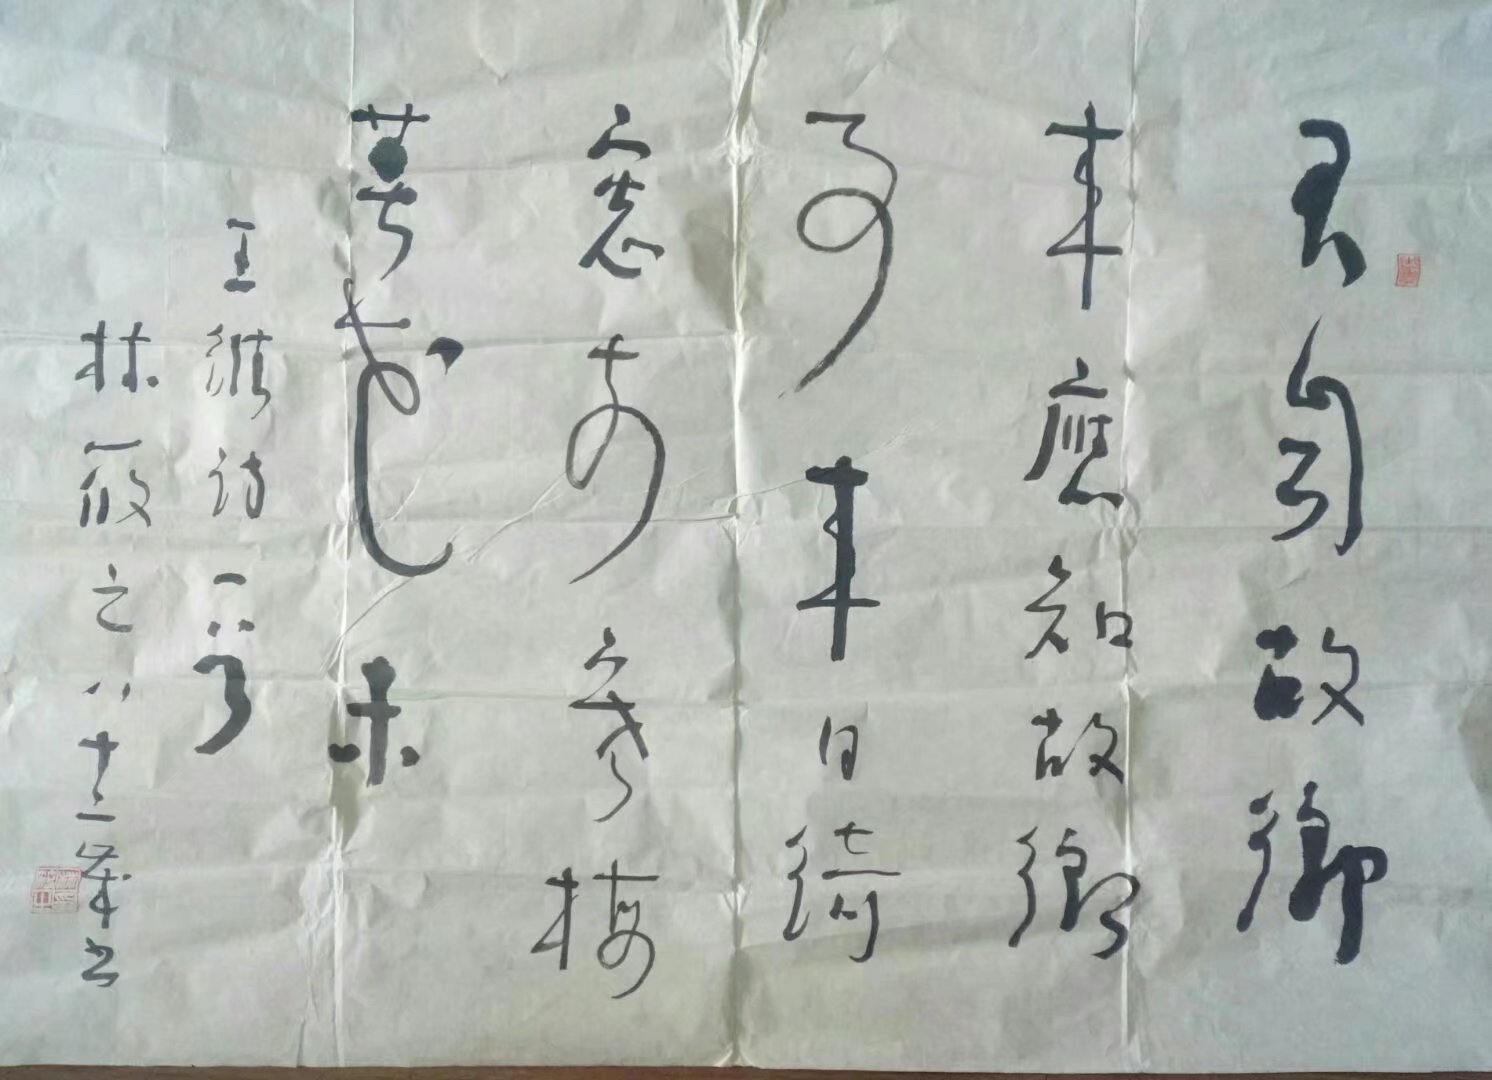 君自故鄉
來應知故鄉
事來日綺
窓前寒梅
著花未
王維詩一首
林筱之八十二歲書